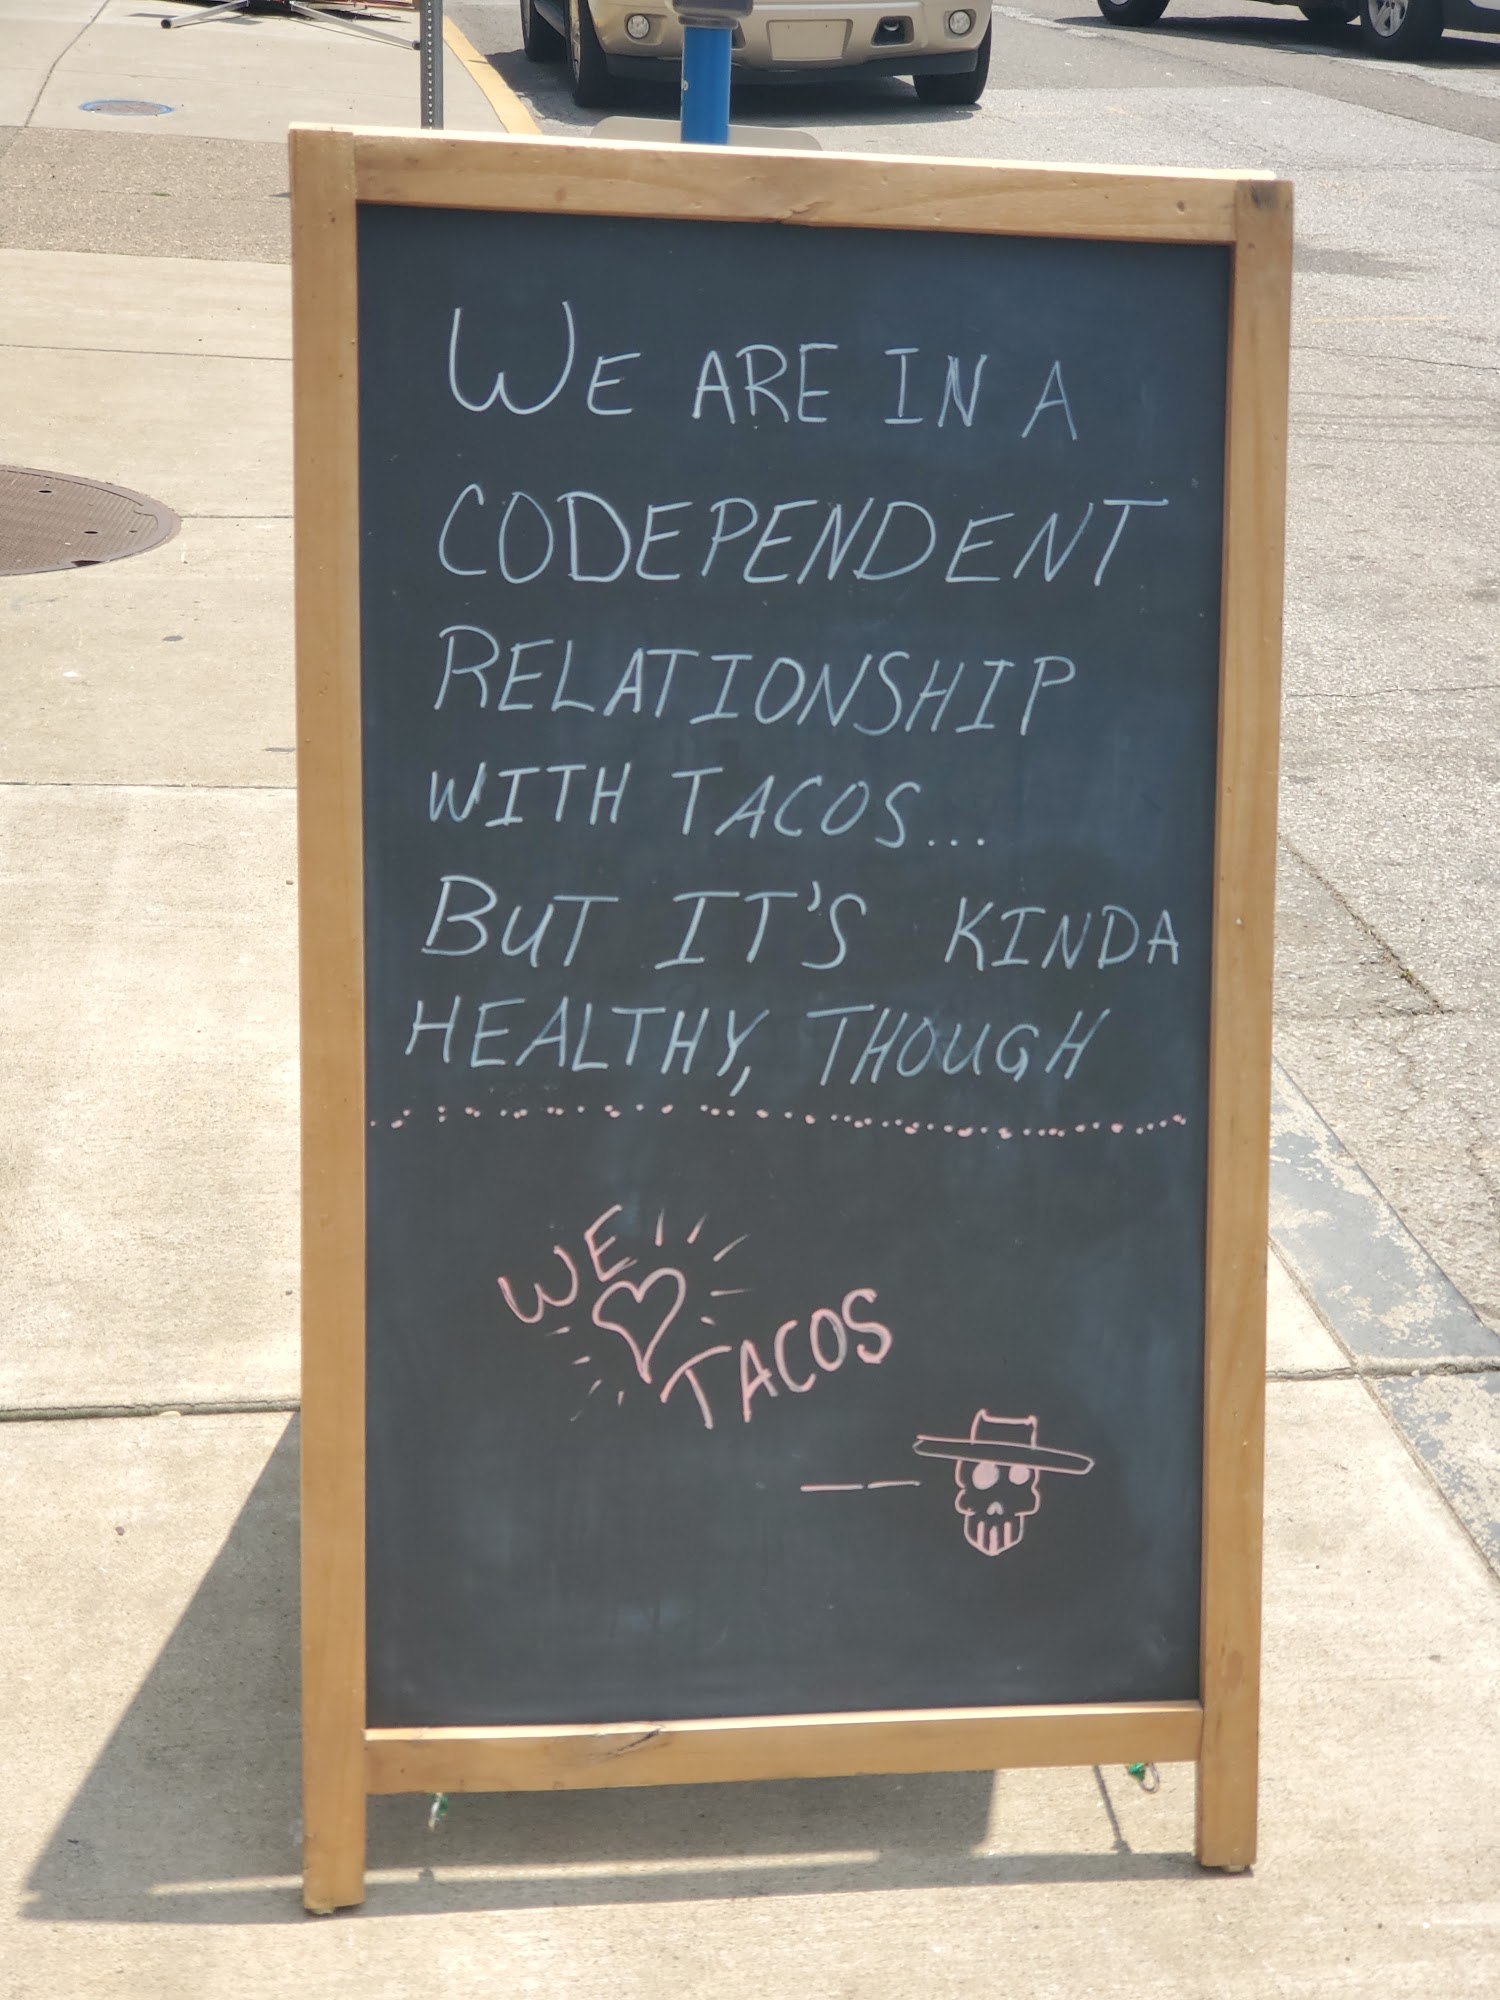 WE ARE IN A
CODEPENDENT
RELATIONSHIP
WITH TACOS...
BUT IT'S KINDA
HEALTHY, THOUGH
WE ♡
TACOS